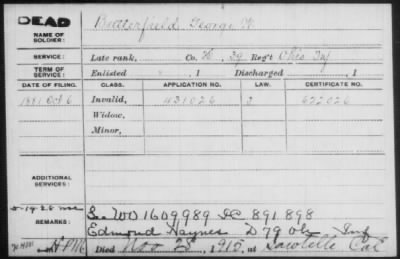 DEAD
NAME OF SOLDIER:
Butterfield George W
SERVICE:
Late rank, Co. H, 39 Reg't Ohio Inf
TERM OF SERVICE:
Enlisted , 1 Discharged , 1
DATE OF FILING. CLASS. APPLICATION NO. LAW. CERTIFICATE NO.
1881 Oct 6 Invalid, 431026 622026
Widow,
Minor,
ADDITIONAL SERVICES:
REMARKS:
See WO 1609989 891898
Edmond Haynes D 79 Oh Inf
Died Nov 25, 1915, at Sawtelle Cal